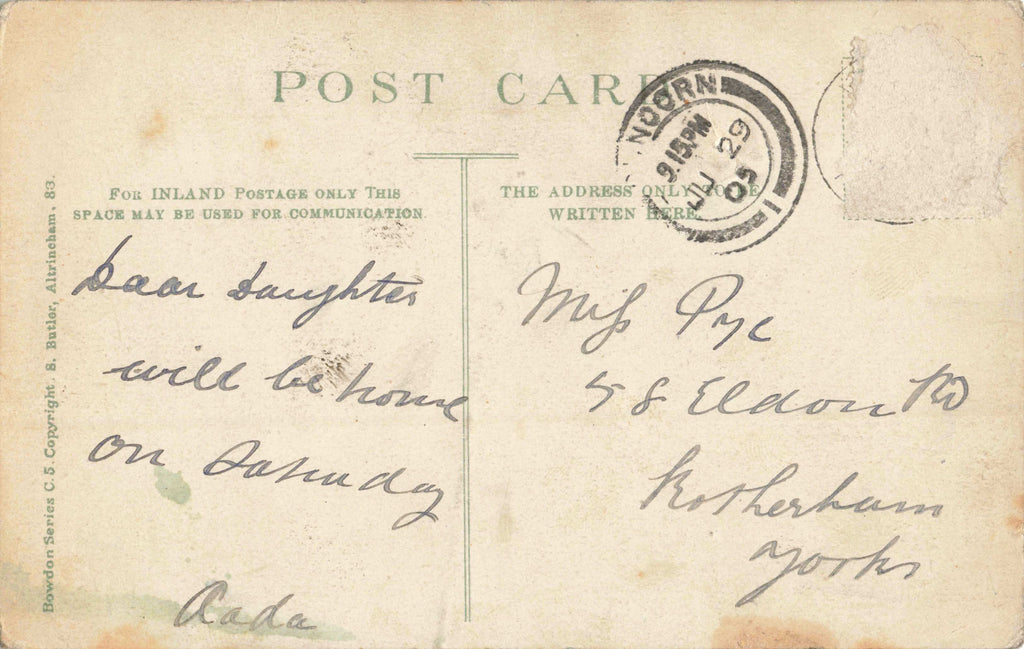 POST CARD
FOR INLAND POSTAGE ONLY THIS
SPACE MAY BE USED FOR COMMUNICATION.
THE ADDRESS ONLY TO BE
WRITTEN HERE.
NDORN
9.15PM
JU 29
05
1
Dear Daughter
will be home
on Saturday
Dada
Miss Pye
58 Eldon Rd
Rotherham
Yorks
Bowdon Series C.5. Copyright. S. Butler, Altrincham, 83.